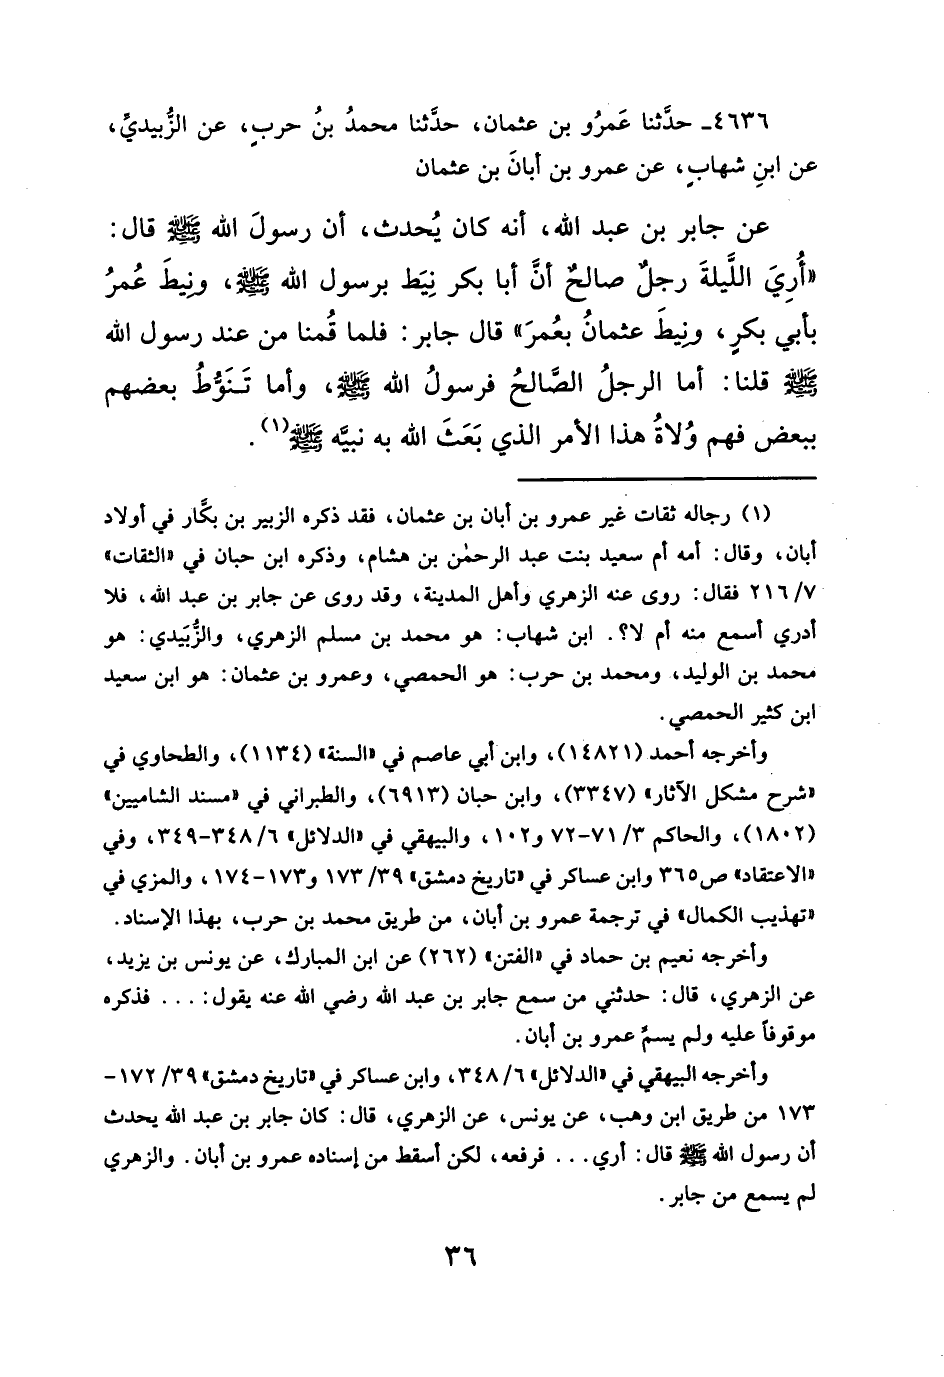 ٤٦٣٦ـ حدَّثنا عَمرُو بن عثمان، حدَّثنا محمدُ بنُ حربٍ، عن الزُّبيديِّ،
عن ابنِ شهابٍ، عن عمرو بن أبانَ بن عثمان
عن جابر بن عبد الله، أنه كان يُحدث، أن رسولَ الله ﷺ قال:
«أُرِيَ اللَّيلةَ رجلٌ صالحٌ أنَّ أبا بكر نِيَط برسول الله ﷺ، ونِيطَ عُمرُ
بأبي بكرٍ، ونِيطَ عثمانُ بعُمرَ» قال جابر: فلما قُمنا من عند رسول الله
ﷺ قلنا: أما الرجلُ الصَّالحُ فرسولُ الله ﷺ، وأما تَنَوُّطُ بعضهم
ببعض فهم وُلاةُ هذا الأمر الذي بَعَثَ الله به نبيَّه ﷺ(١).
(١) رجاله ثقات غير عمرو بن أبان بن عثمان، فقد ذكره الزبير بن بكَّار في أولاد
أبان، وقال: أمه أم سعيد بنت عبد الرحمٰن بن هشام، وذكره ابن حبان في «الثقات»
٢١٦/٧ فقال: روى عنه الزهري وأهل المدينة، وقد روى عن جابر بن عبد الله، فلا
أدري أسمع منه أم لا؟. ابن شهاب: هو محمد بن مسلم الزهري، والزُّبَيدي: هو
محمد بن الوليد، ومحمد بن حرب: هو الحمصي، وعمرو بن عثمان: هو ابن سعيد
ابن كثير الحمصي.
وأخرجه أحمد (١٤٨٢١)، وابن أبي عاصم في «السنة» (١١٣٤)، والطحاوي في
«شرح مشكل الآثار» (٣٣٤٧)، وابن حبان (٦٩١٣)، والطبراني في «مسند الشاميين»
(١٨٠٢)، والحاكم ٣/ ٧١-٧٢ و١٠٢، والبيهقي في «الدلائل» ٦/ ٣٤٨-٣٤٩، وفي
«الاعتقاد» ص٣٦٥ وابن عساكر في «تاريخ دمشق» ٣٩/ ١٧٣ و١٧٣-١٧٤، والمزي في
«تهذيب الكمال» في ترجمة عمرو بن أبان، من طريق محمد بن حرب، بهذا الإسناد.
وأخرجه نعيم بن حماد في «الفتن» (٢٦٢) عن ابن المبارك، عن يونس بن يزيد،
عن الزهري، قال: حدثني من سمع جابر بن عبد الله رضي الله عنه يقول: ... فذكره
موقوفاً عليه ولم يسمِّ عمرو بن أبان.
وأخرجه البيهقي في «الدلائل» ٦/ ٣٤٨، وابن عساكر في «تاريخ دمشق» ٣٩/ ١٧٢-
١٧٣ من طريق ابن وهب، عن يونس، عن الزهري، قال: كان جابر بن عبد الله يحدث
أن رسول الله ﷺ قال: أري... فرفعه، لكن أسقط من إسناده عمرو بن أبان. والزهري
لم يسمع من جابر.
٣٦